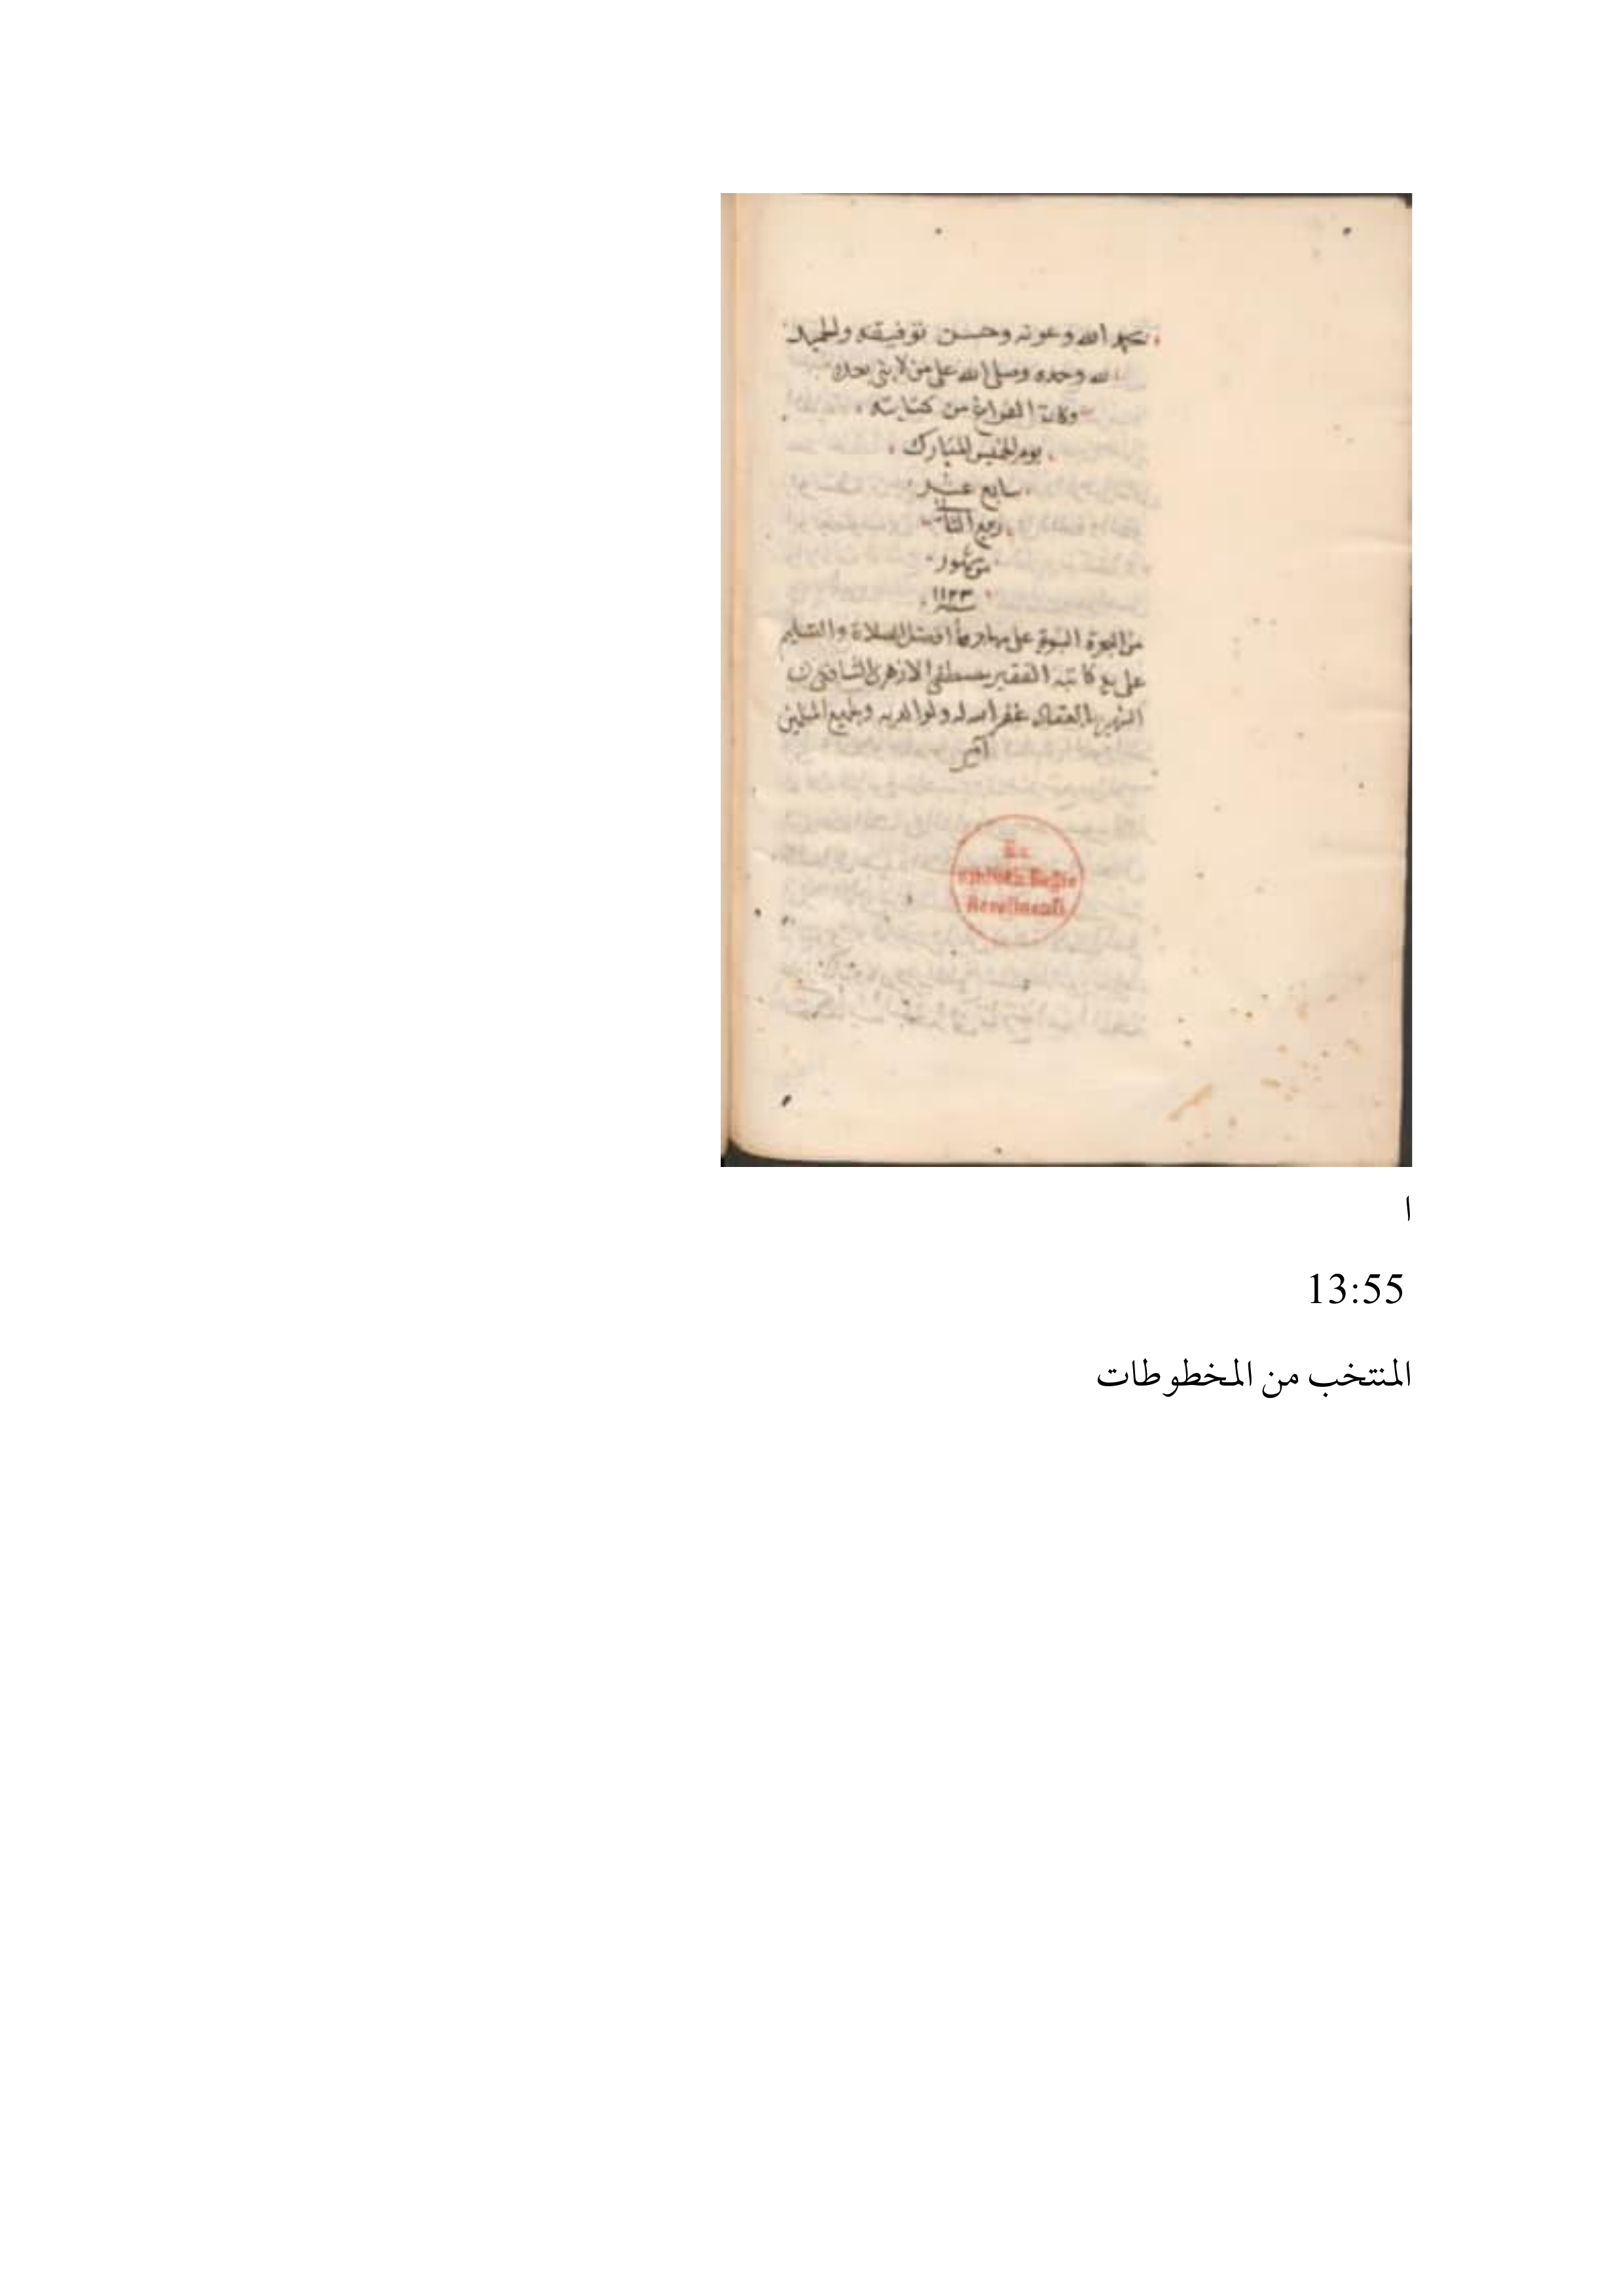 بحمد الله وعونه وحسن توفيقه والحمد
لله وحده وصلى الله على من لا نبي بعده
وكان الفراغ من كتابته
يوم الخميس المبارك
سابع عشر
ربيع الثاني
من شهور
سنة ١١٢٣
من الهجرة النبوية على مهاجرها افضل الصلاة والتسليم
على يد كاتبه الفقير مصطفى الازهري الشافعي
الشهير بالعقاد غفر الله له ولوالديه ولجميع المسلمين
آمين
Ex
Biblioth. Regia
Berolinensi
ا
13:55
المنتخب من المخطوطات